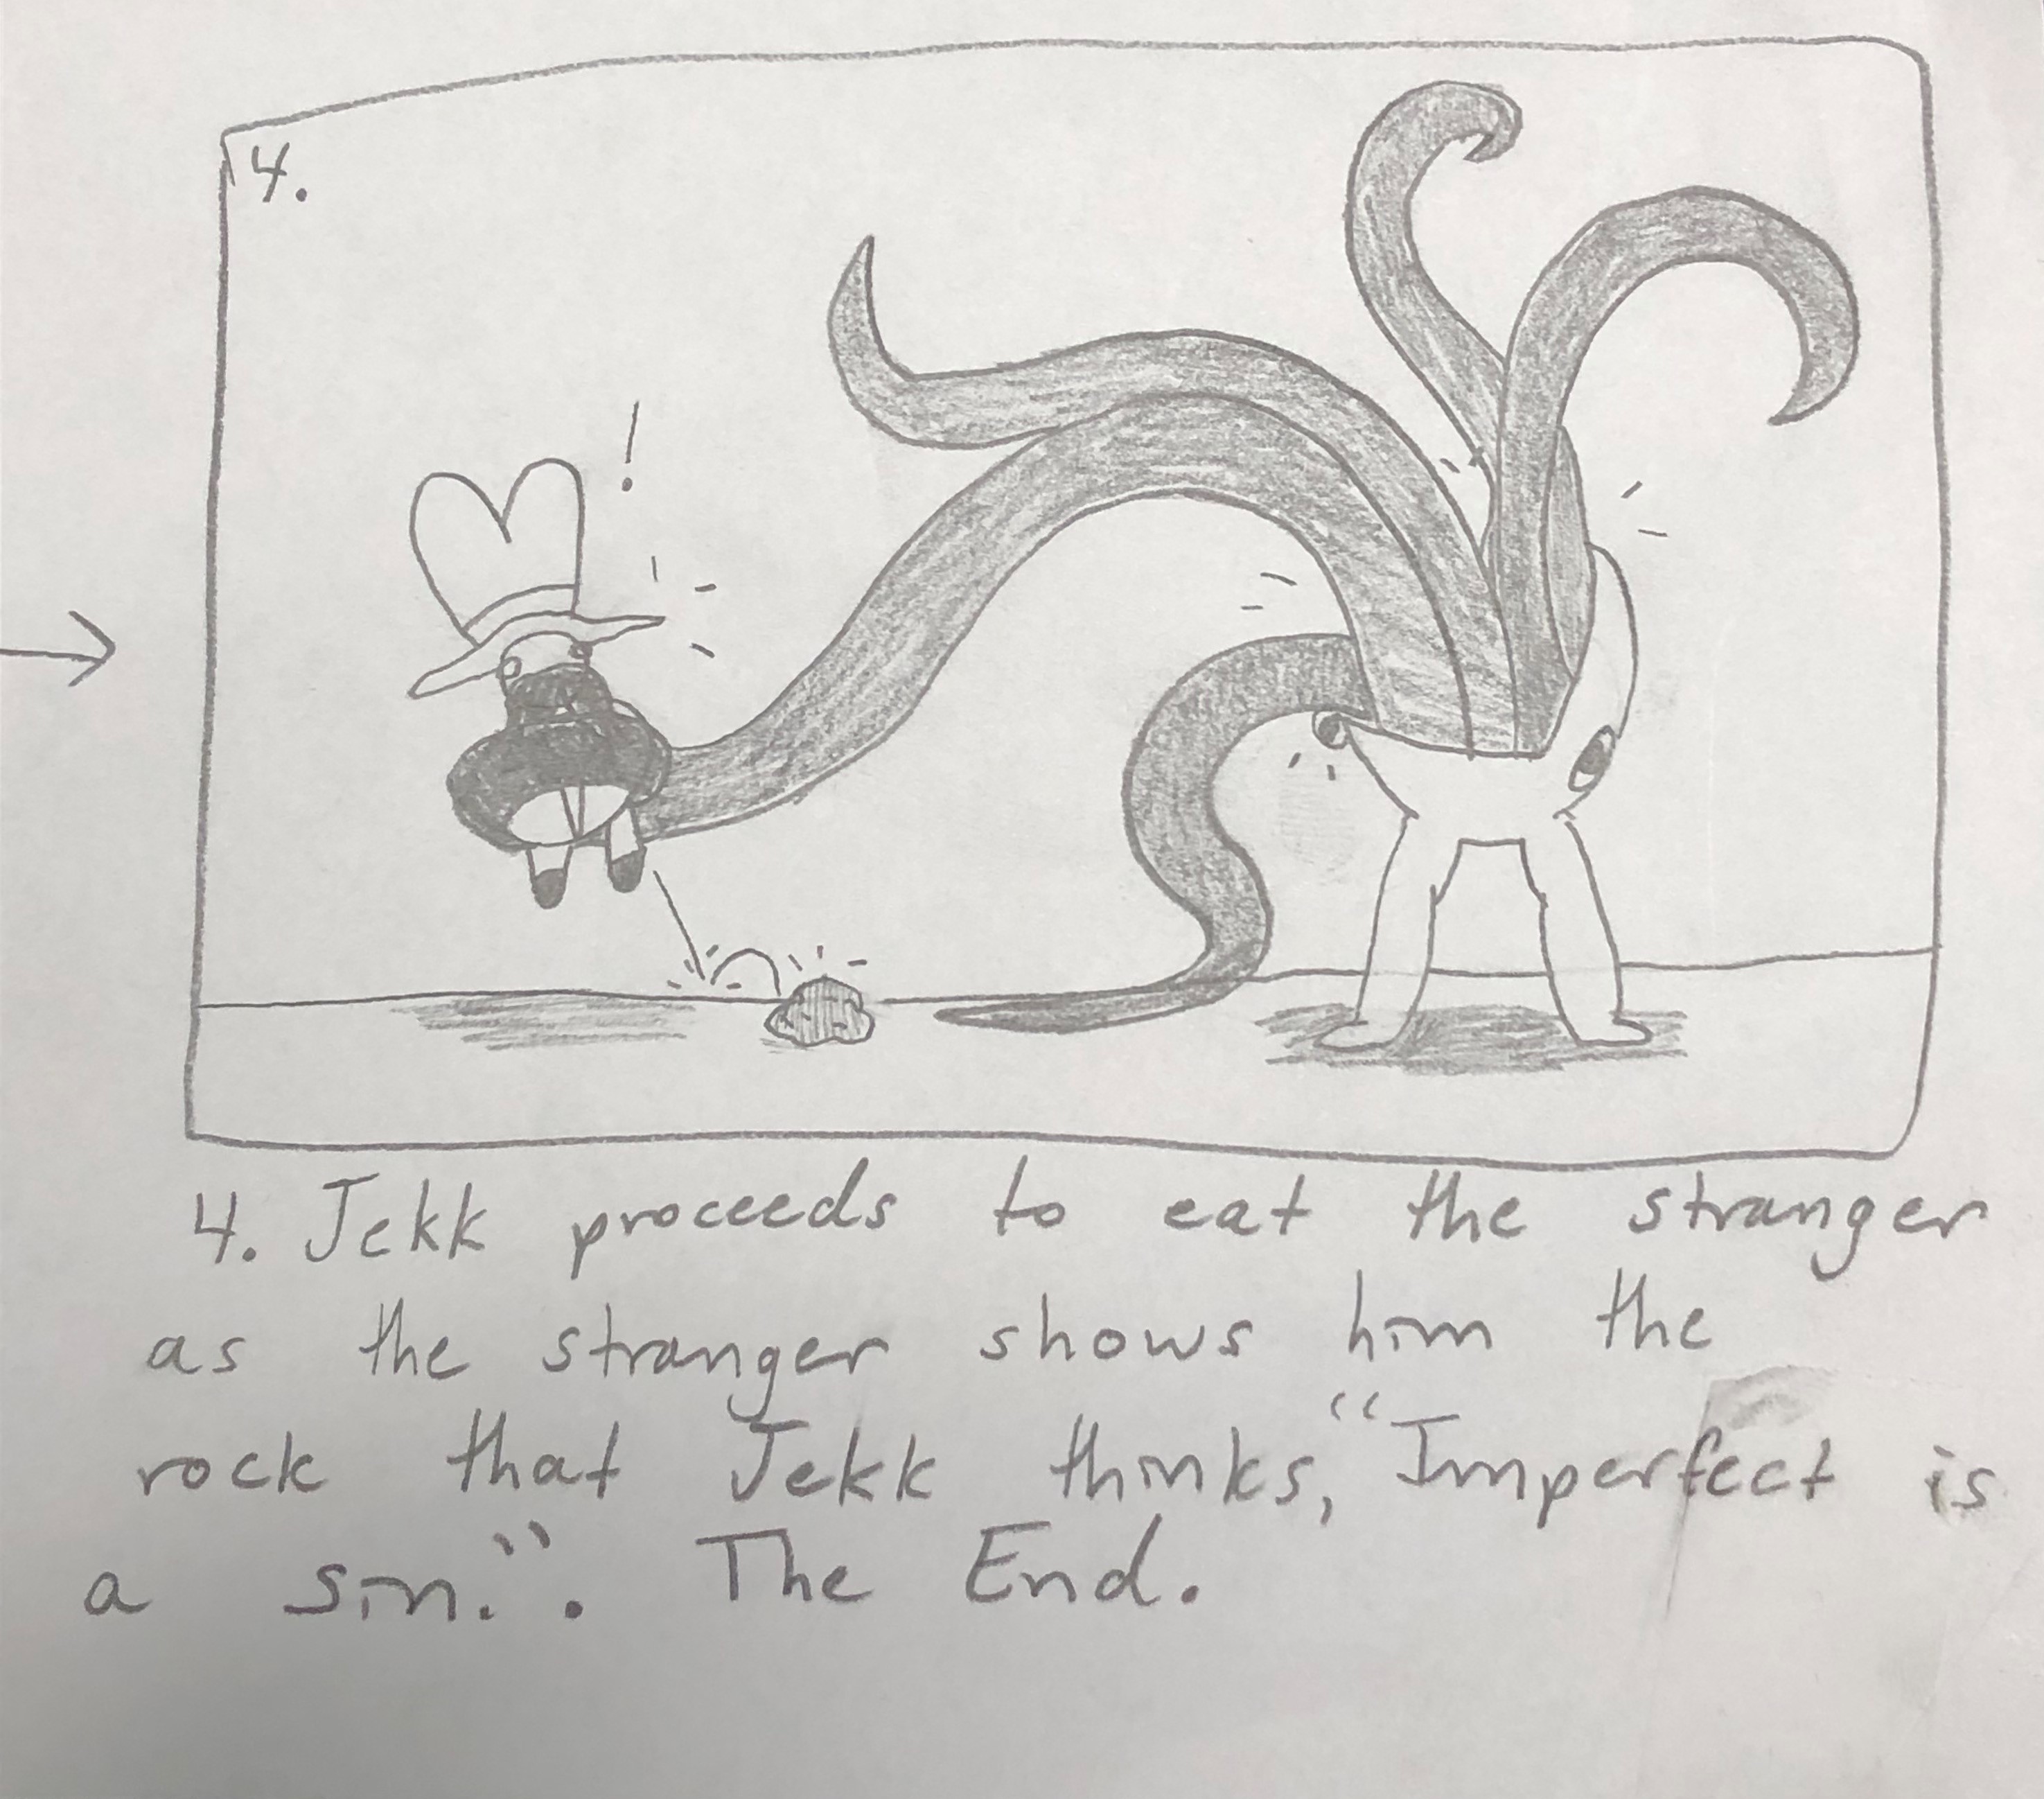 4.
!
4. Jekk proceeds to eat the stranger
as the stranger shows him the
rock that Jekk thinks, "Imperfect is
a sin.". The End.